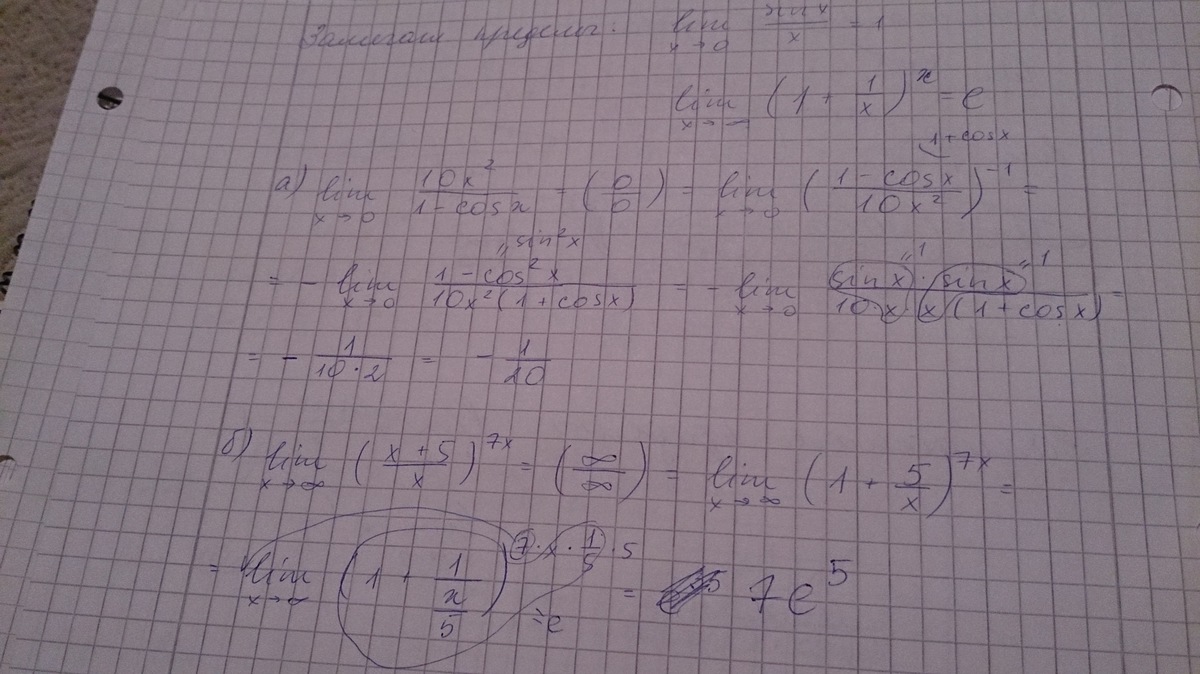 Замечат. пределы: lim x→0 sin x / x = 1
lim x→∞ (1 + 1/x)^x = e
1+cosx
а) lim x→0 10x² / (1-cosx) = (0/0) = lim x→0 ((1-cosx) / 10x²)^-1 =
"sin²x "1 "1
= - lim x→0 (1-cos²x) / (10x²(1+cosx)) = - lim x→0 (sinx · sinx) / (10·x·x(1+cosx)) =
= - 1/(10·2) = - 1/20
б) lim x→∞ ((x+5)/x)^7x = (∞/∞) = lim x→∞ (1 + 5/x)^7x =
= lim x→∞ (1 + 1/(x/5))^(7·x·1/5·5) = 7e⁵
=e